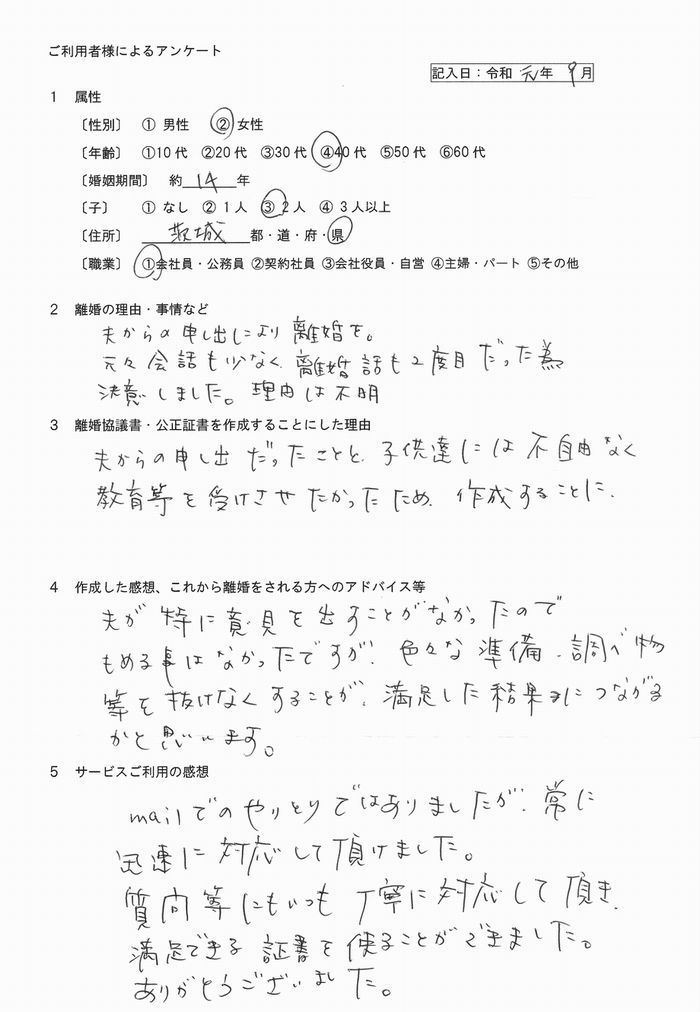 ご利用者様によるアンケート
記入日：令和 元年 9月
1 属性
〔性別〕 ① 男性 ② 女性
〔年齢〕 ①10代 ②20代 ③30代 ④40代 ⑤50代 ⑥60代
〔婚姻期間〕 約 14 年
〔子〕 ① なし ② 1人 ③ 2人 ④ 3人以上
〔住所〕 茨城 都・道・府・県
〔職業〕 ①会社員・公務員 ②契約社員 ③会社役員・自営 ④主婦・パート ⑤その他
2 離婚の理由・事情など
夫からの申し出により離婚を。
元々会話も少なく、離婚話も2度目だった為
決意しました。理由は不明
3 離婚協議書・公正証書を作成することにした理由
夫からの申し出だったことと、子供達には不自由なく
教育等を受けさせたかったため、作成することに、
4 作成した感想、これから離婚をされる方へのアドバイス等
夫が特に意見を出すことがなかったので
もめる事はなかったですが、色々な準備、調べ物
等を抜けなくすることが、満足した結果につながる
かと思います。
5 サービスご利用の感想
mailでのやりとりではありましたが、常に
迅速に対応して頂けました。
質問等にもいつも丁寧に対応して頂き、
満足できる証書を使ることができました。
ありがとうございました。